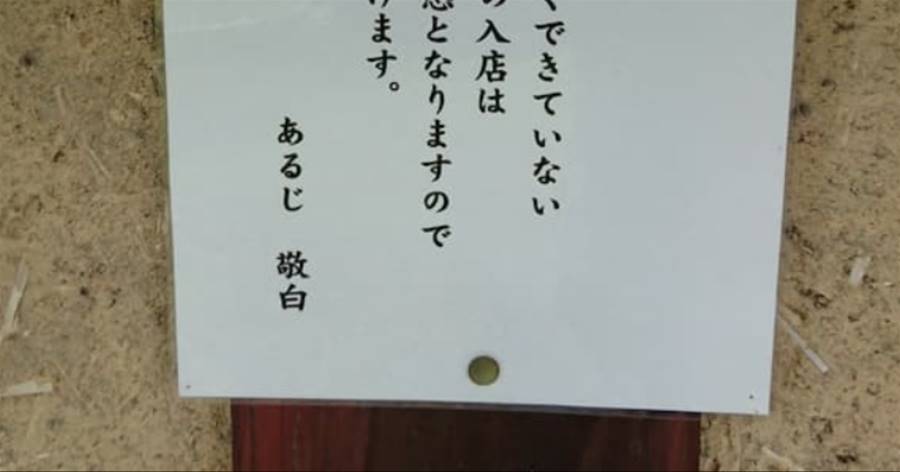 くできていない
の入店は
惑となりますので
けます。
あるじ 敬白